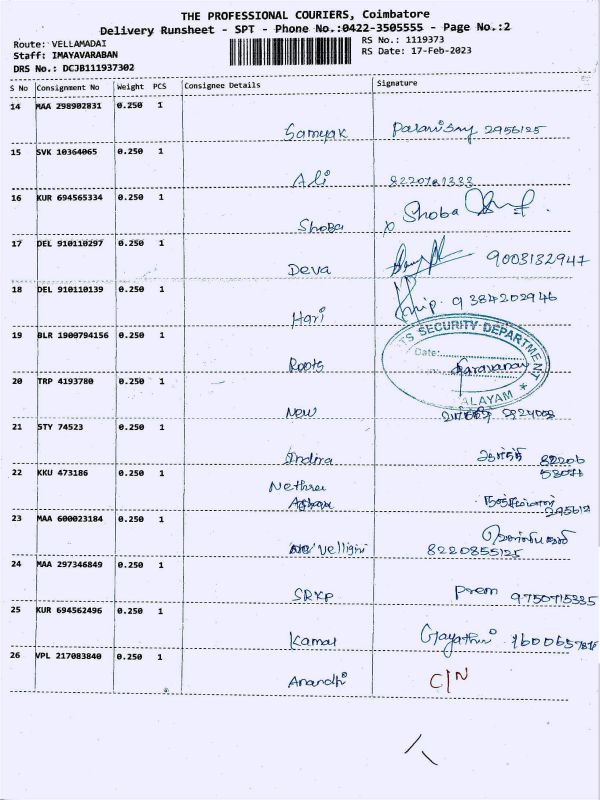 THE PROFESSIONAL COURIERS, Coimbatore
Delivery Runsheet - SPT - Phone No.:0422-3505555 - Page No.:2
Route: VELLAMADAI
RS No.: 1119373
Staff: IMAYAVARABAN
RS Date: 17-Feb-2023
DRS No.: DCJB111937302
S No Consignment No Weight PCS Consignee Details Signature
14 MAA 298902831 0.250 1
Samyak 2956125
15 SVK 10364065 0.250 1
Ali
16 KUR 694565334 0.250 1
Shoba Shoba
17 DEL 910110297 0.250 1
Deva 9003132947
18 DEL 910110139 0.250 1
Hari 9384202946
19 BLR 1900794156 0.250 1
Roots
ITS SECURITY DEPARTMENT
Date:
Saravanan
ALAYAM
20 TRP 4193780 0.250 1
New
21 STY 74523 0.250 1
Indira
22 KKU 473186 0.250 1
Nethra
295612
23 MAA 600023184 0.250 1
Velligiri 8220855125
24 MAA 297346849 0.250 1
SRKP Prem 9750715335
25 KUR 694562496 0.250 1
Kamal Gayathri
26 VPL 217083840 0.250 1
Anandhi C/N